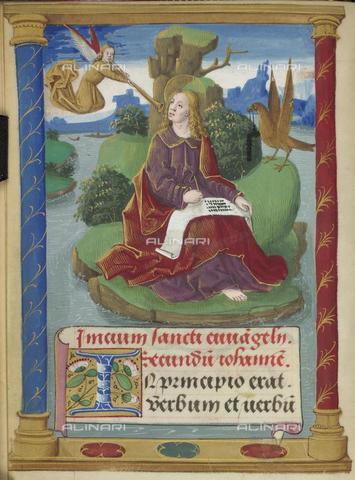 ALINARI
ALINARI
ALINARI
Inicium sancti euuāgelii.
secundū iohannē.
IN principio erat.
verbum et uerbū
ALINARI